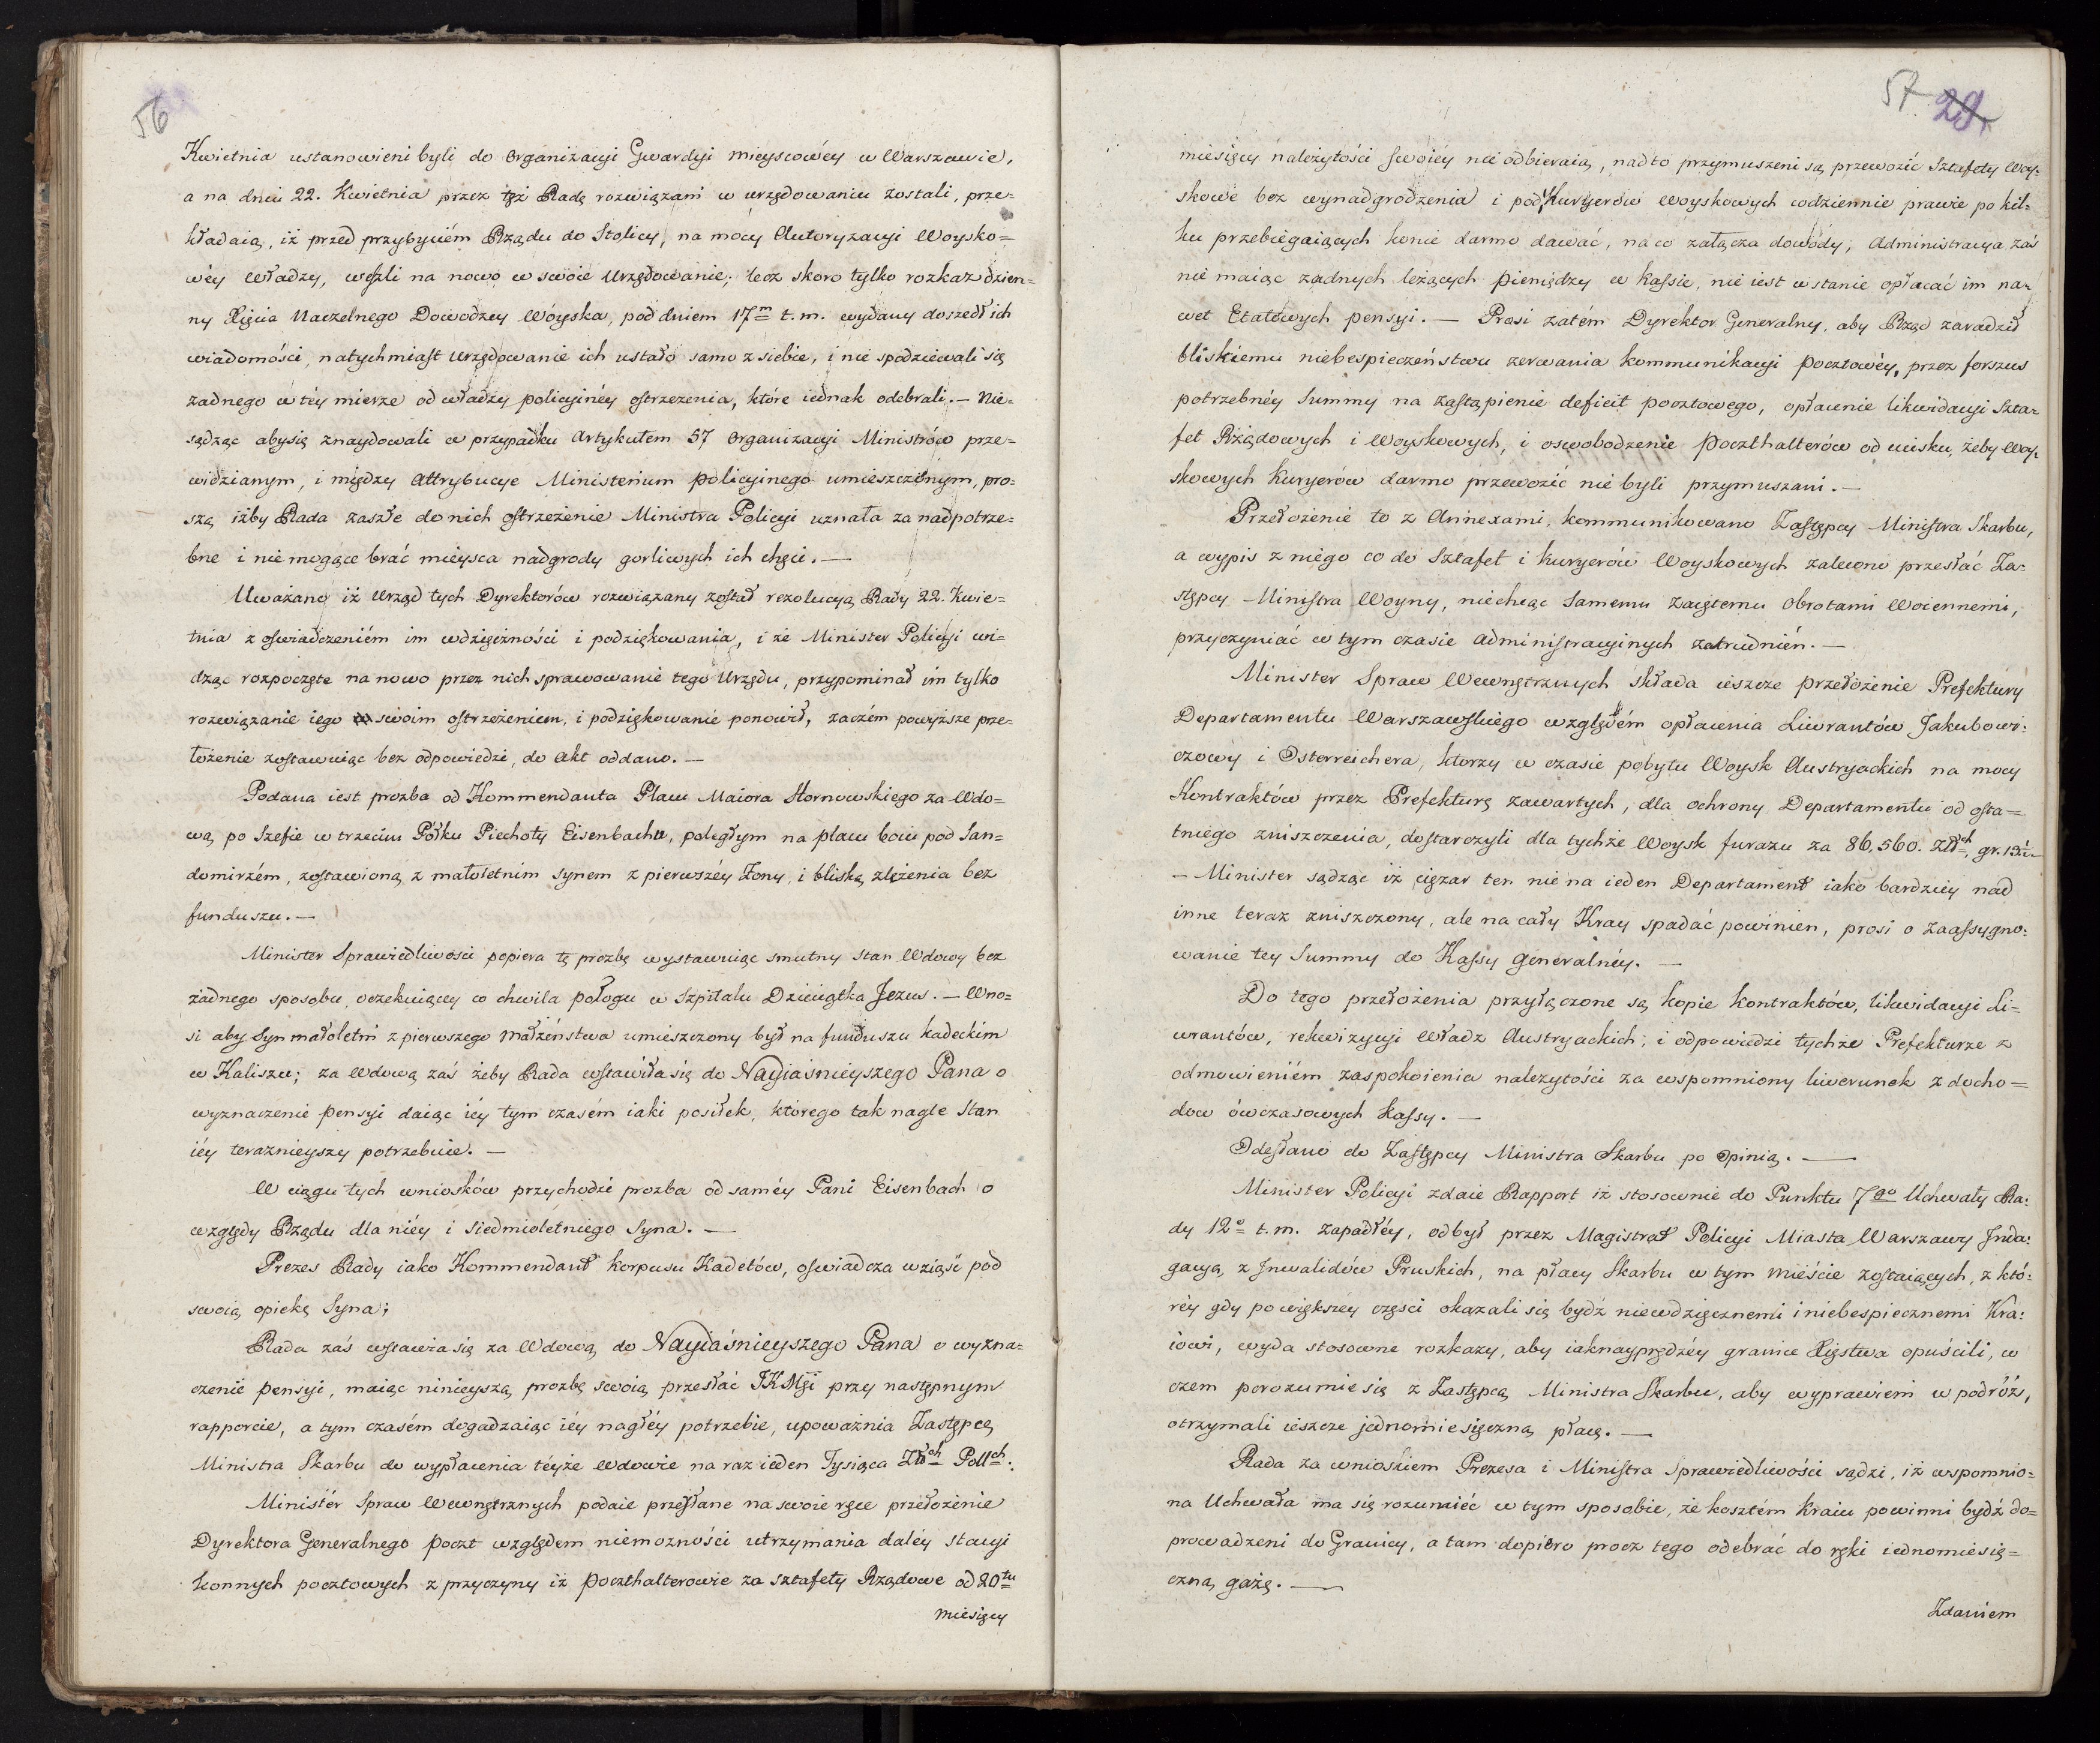 56
Kwietnia ustanowieni byli do Organizacyi Gwardyi mieyscowéy w Warszawie,
a na dniu 22. Kwietnia przez tęż Radę rozwiązani w urzędowaniu zostali, prze-
kładaią, iż przed przybyciém Rządu do Stolicy, na mocy Autoryzacyi Woysko=
wéy Władzy, weszli na nowo w swoie Urzędowanie; lecz skoro tylko rozkaz dzien=
ny Xięcia Naczelnego Dowódzcy Woyska, pod dniem 17m t. m. wydany doszedł ich
wiadomości, natychmiast urzędowanie ich ustało samo z siebie, i nie spodziewali się
żadnego w téy mierze od władzy policyinéy ostrzeżenia, które iednak odebrali. — Nie=
sądząc aby się znaydowali w przypadku Artykułem 57 Organizacyi Ministrów prze=
widzianym, i między Attrybucye Ministerium policyinego umieszczonym, pro=
szą iżby Rada zaszłe do nich ostrzeżenie Ministra Policyi uznała za nadpotrze=
bne i nie mogące brać mieysca nadgrody gorliwych ich chęci. —
Uważano iż Urząd tych Dyrektorów rozwiązany został rezolucyą Rady 22. Kwie=
tnia z oświadczeniém im wdzięczności i podziękowania, i że Minister Policyi wi=
dząc rozpoczęte na nowo przez nich sprawowanie tego Urzędu, przypominał im tylko
rozwiązanie iego swoim ostrzeżeniem, i podziękowanie ponowił, zaczém powyższe prze=
łożenie zostawuiąc bez odpowiedzi, do Akt oddano. —
Podana iest prozba od Kommendanta Placu Maiora Hornowskiego za Wdo=
wą po Szefie w trzecim Półku Piechoty Eisenbachu, poległym na placu boiu pod San=
domirzém, zostawioną z małoletnim synem z pierwszéy Żony, i bliską zlężenia bez
funduszu. —
Minister Sprawiedliwości popiera tę prozbę wystawuiąc smutny stan Wdowy bez
żadnego sposobu, oczekuiącey co chwila połogu w Szpitalu Dzieciątka Jezus. — Wno=
si aby Syn małoletni z pierwszego małżeństwa umieszczony był na funduszu kadeckim
w Kaliszu; za Wdową zaś żeby Rada wstawiła się do Nayiaśnieyszego Pana o
wyznaczenie pensyi daiąc iéy tym czasém iaki posiłek, którego tak nagle stan
iéy teraznieyszy potrzebuie. —
W ciągu tych wniosków przychodzi prozba od saméy Pani Eisenbach o
względy Rządu dla niéy i siedmioletniego Syna. —
Prezes Rady iako Kommendant korpusu Kadetów, oświadcza wziąść pod
swoią opiekę Syna;
Rada zaś wstawia się za Wdową do Nayiaśnieyszego Pana o wyzna=
czenie pensyi, maiąc ninieyszą prozbę swoią przesłać JKMci przy następnym
rapporcie, a tym czasém dogadzaiąc iéy nagłéy potrzebie, upoważnia Zastępcę
Ministra Skarbu do wypłacenia téyże Wdowie na raz ieden Tysiąca Złch Pollch.
Ministér Spraw Wewnętrznych podaie przesłane na swoie ręce przełożenie
Dyrektora Generalnego Poczt względem niemożności utrzymania daléy stacyi
konnych pocztowych z przyczyny iż Poczthalterowie za sztafety Rządowe od 20tu
miesięcy
57. 29.
miesięcy należytości swoiéy nie odbieraią, nadto przymuszeni są przewozić Sztafety Woy=
skowe bez wynadgrodzenia i pod kuryerów Woyskowych codziennie prawie po kil=
ku przebiegaiących konie darmo dawać, na co załącza dowody; Administracya zaś
nie maiąc żadnych leżących pieniędzy w Kassie, nie iest w stanie opłacać im na=
wet Etatowych pensyi. — Prosi zatém Dyrektor Generalny, aby Rząd zaradził
bliskiemu niebespieczeństwu zerwania kommunikacyi pocztowéy, przez forszus
potrzebnéy Summy na zastąpienie deficit pocztowego, opłacenie likwidacyi Szta=
fet Rządowych i Woyskowych, i oswobodzenie Poczthalterów od ucisku, żeby Woy=
skowych Kuryerów darmo przewozić nie byli przymuszani. —
Przełożenie to z Annexami, kommunikowano Zastępcy Ministra Skarbu,
a wypis z niego co do Sztafet i kuryerów Woyskowych zalecono przesłać Za=
stępcy Ministra Woyny, niechcąc samemu zaiętemu Obrotami Woiennemi,
przyczyniać w tym czasie Administracyinych zatrudnień. —
Minister Spraw Wewnętrznych składa ieszcze przełożenie Prefektury
Departamentu Warszawskiego względém opłacenia Liwrantów Jakubowi=
czowy i Osterreichera, ktorzy w czasie pobytu Woysk Austryackich na mocy
Kontraktów przez Prefekturę zawartych, dla ochrony Departamentu od osta=
tniego zniszczenia, dostarczyli dla tychże Woysk furażu za 86,560. Złch, gr. 13
— Minister sądząc iż ciężar ten nie na ieden Departament iako bardziéy nad
inne teraz zniszczony, ale na cały Kray spadać powinien, prosi o zaassygno=
wanie tey Summy do Kassy generalnéy. —
Do tego przełożenia przyłączone są kopie kontraktów, likwidacyi Li=
wrantów, rekwizycyi Władz Austryackich, i odpowiedzi tychże Prefekturze z
odmowieniém zaspokoienia należytości za wspomniony liwerunek z docho=
dow ówczasowych kassy. —
Odesłano do Zastępcy Ministra Skarbu po Opinią. —
Minister Policyi zdaie Rapport iż stosownie do Punktu 7go Uchwały Ra=
dy 12o t. m. zapadłéy, odbył przez Magistrat Policyi Miasta Warszawy Inda=
gacyą z Inwalidów Pruskich, na płacy Skarbu w tym mieście zostaiących, z któ=
réy gdy po większéy części okazali się bydź niewdzięcznemi i niebespiecznemi Kra=
iowi, wyda stosowne rozkazy, aby iaknayprędzéy granice Xięstwa opuścili, w
czem porozumie się z Zastępcą Ministra Skarbu, aby wyprawieni w podróż,
otrzymali ieszcze jednomiesięczną płacę. —
Rada za wnioskiem Prezesa i Ministra Sprawiedliwości sądzi, iż wspomnio=
na Uchwała ma się rozumieć w tym sposobie, że kosztém Kraiu powinni bydź do=
prowadzeni do Granicy, a tam dopiéro procz tego odebrać do ręki iednomiesię=
czną gażę. —
Zdaniem